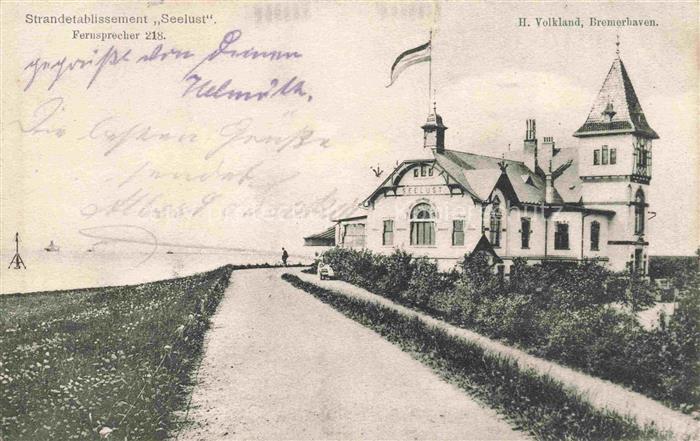 Strandetablissement „Seelust“.
Fernsprecher 218.
H. Volkland, Bremerhaven.
gegrüßt von Deinen
Hellmuth.
Die besten Grüße
sendet
SEELUST